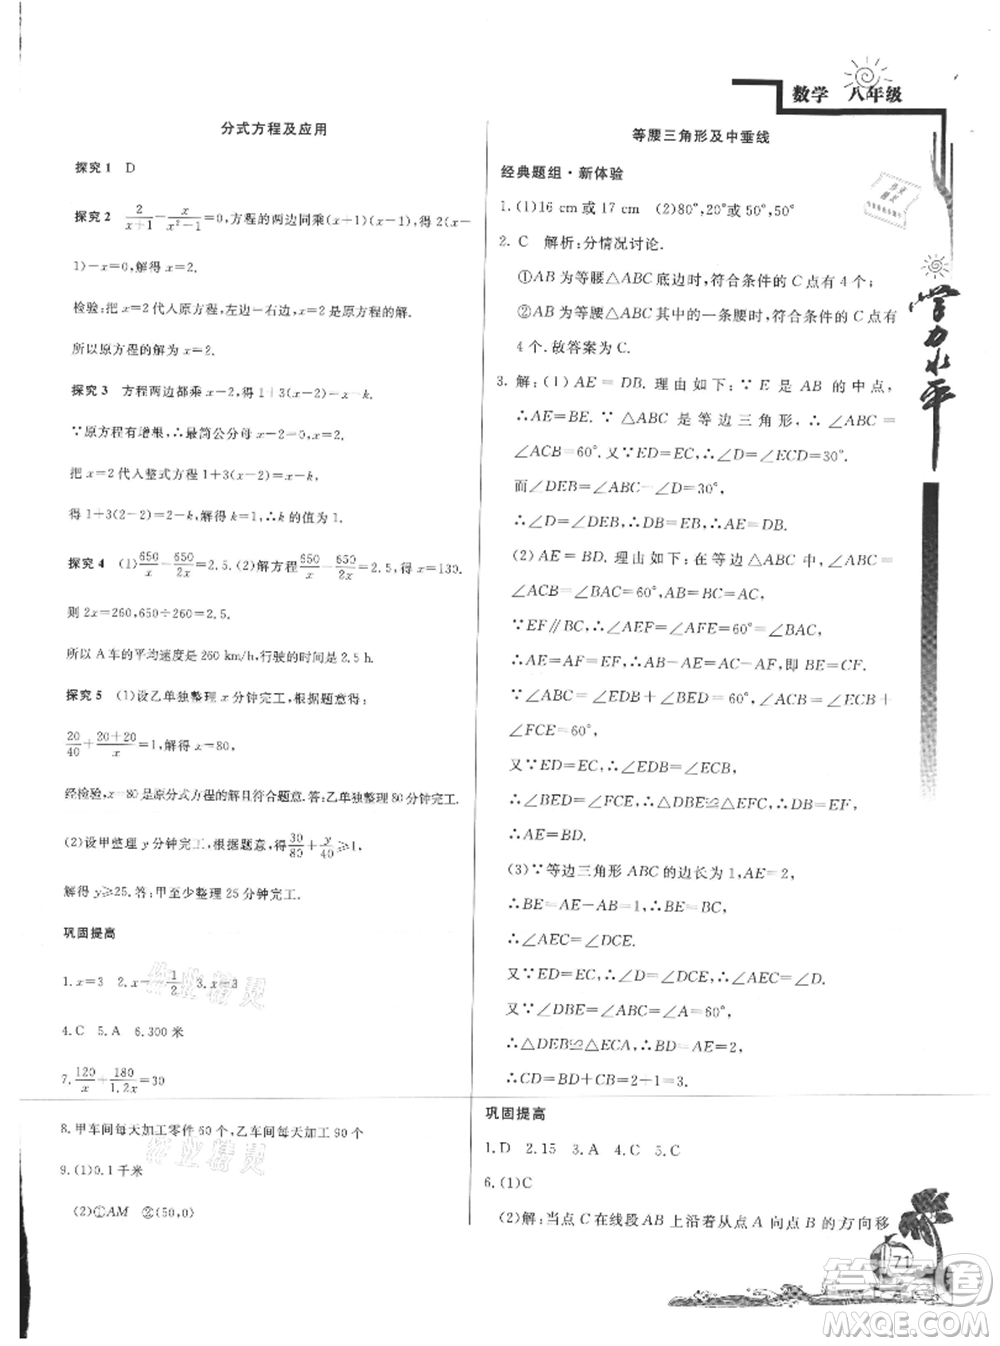 数学 八年级
学力水平
分式方程及应用
探究1 D
探究2 2/(x+1)−x/(x²−1)=0,方程的两边同乘(x+1)(x−1),得2(x−
1)−x=0,解得x=2.
检验:把x=2代入原方程,左边=右边,
所以原方程的解为x=2.
探究3 方程两边都乘x−2,得1+3(x−2)=x−k,
∵原方程有增根,∴最简公分母x−2=0,解得x=2,
把x=2代入整式方程1+3(x−2)=x−k,
得1+3(2−2)=2−k,解得k=1,∴k的值为1.
探究4 (1)650/x−650/2x=2.5.(2)解方程650/x−650/2x=2.5,得x=130.
则2x=260,650÷260=2.5.
所以A车的平均速度是260 km/h,行驶的时间是2.5 h.
探究5 (1)设乙单独整理x分钟完工,根据题意得:
20/40+(20+20)/x=1,解得x=80,
经检验,x=80是原分式方程的解且符合题意.答:乙单独整理80分钟完工.
(2)设甲整理y分钟完工,根据题意,得30/80+y/40≥1,
解得y≥25.答:甲至少整理25分钟完工.
巩固提高
1.x=3 2.x=−1/2 3.x=3
4.C 5.A 6.300米
7.120/x+180/1.2x=30
8.甲车间每天加工零件60个,乙车间每天加工90个
9.(1)0.1千米
(2)①AM ②(50,0)
等腰三角形及中垂线
经典题组·新体验
1.(1)16 cm或17 cm (2)80°,20°或50°,50°
2.C 解析:分情况讨论.
①AB为等腰△ABC底边时,符合条件的C点有4个;
②AB为等腰△ABC其中的一条腰时,符合条件的C点有
4个.故答案为C.
3.解:(1)AE=DB.理由如下:∵E是AB的中点,
∴AE=BE.∵△ABC是等边三角形,∴∠ABC=
∠ACB=60°.又∵ED=EC,∴∠D=∠ECD=30°.
而∠DEB=∠ABC−∠D=30°,
∴∠D=∠DEB,∴DB=BE,∴AE=DB.
(2)AE=BD.理由如下:在等边△ABC中,∠ABC=
∠ACB=∠BAC=60°,AB=BC=AC,
∵EF∥BC,∴∠AEF=∠AFE=60°=∠BAC,
∴AE=AF=EF,∴AB−AE=AC−AF,即BE=CF.
∵∠ABC=∠EDB+∠BED=60°,∠ACB=∠ECB+
∠FCE=60°,
又∵ED=EC,∴∠EDB=∠ECB,
∴∠BED=∠FCE,∴△DBE≌△EFC,∴DB=EF,
∴AE=BD.
(3)∵等边三角形ABC的边长为1,AE=2,
∴BE=AE−AB=1=BC,
∴∠AEC=∠DCE.
又∵ED=EC,∴∠D=∠DCE,∴∠AEC=∠D.
又∵∠DBE=∠ABC=∠A=60°,
∴△DEB≌△ECA,∴BD=AE=2,
∴CD=BD+CB=2+1=3.
巩固提高
1.D 2.15 3.A 4.B 5.C
6.(1)C
(2)解:当点C在线段AB上沿着从点A向点B的方向移
71
作业精灵
作业精灵
答案圈
MXQE.COM